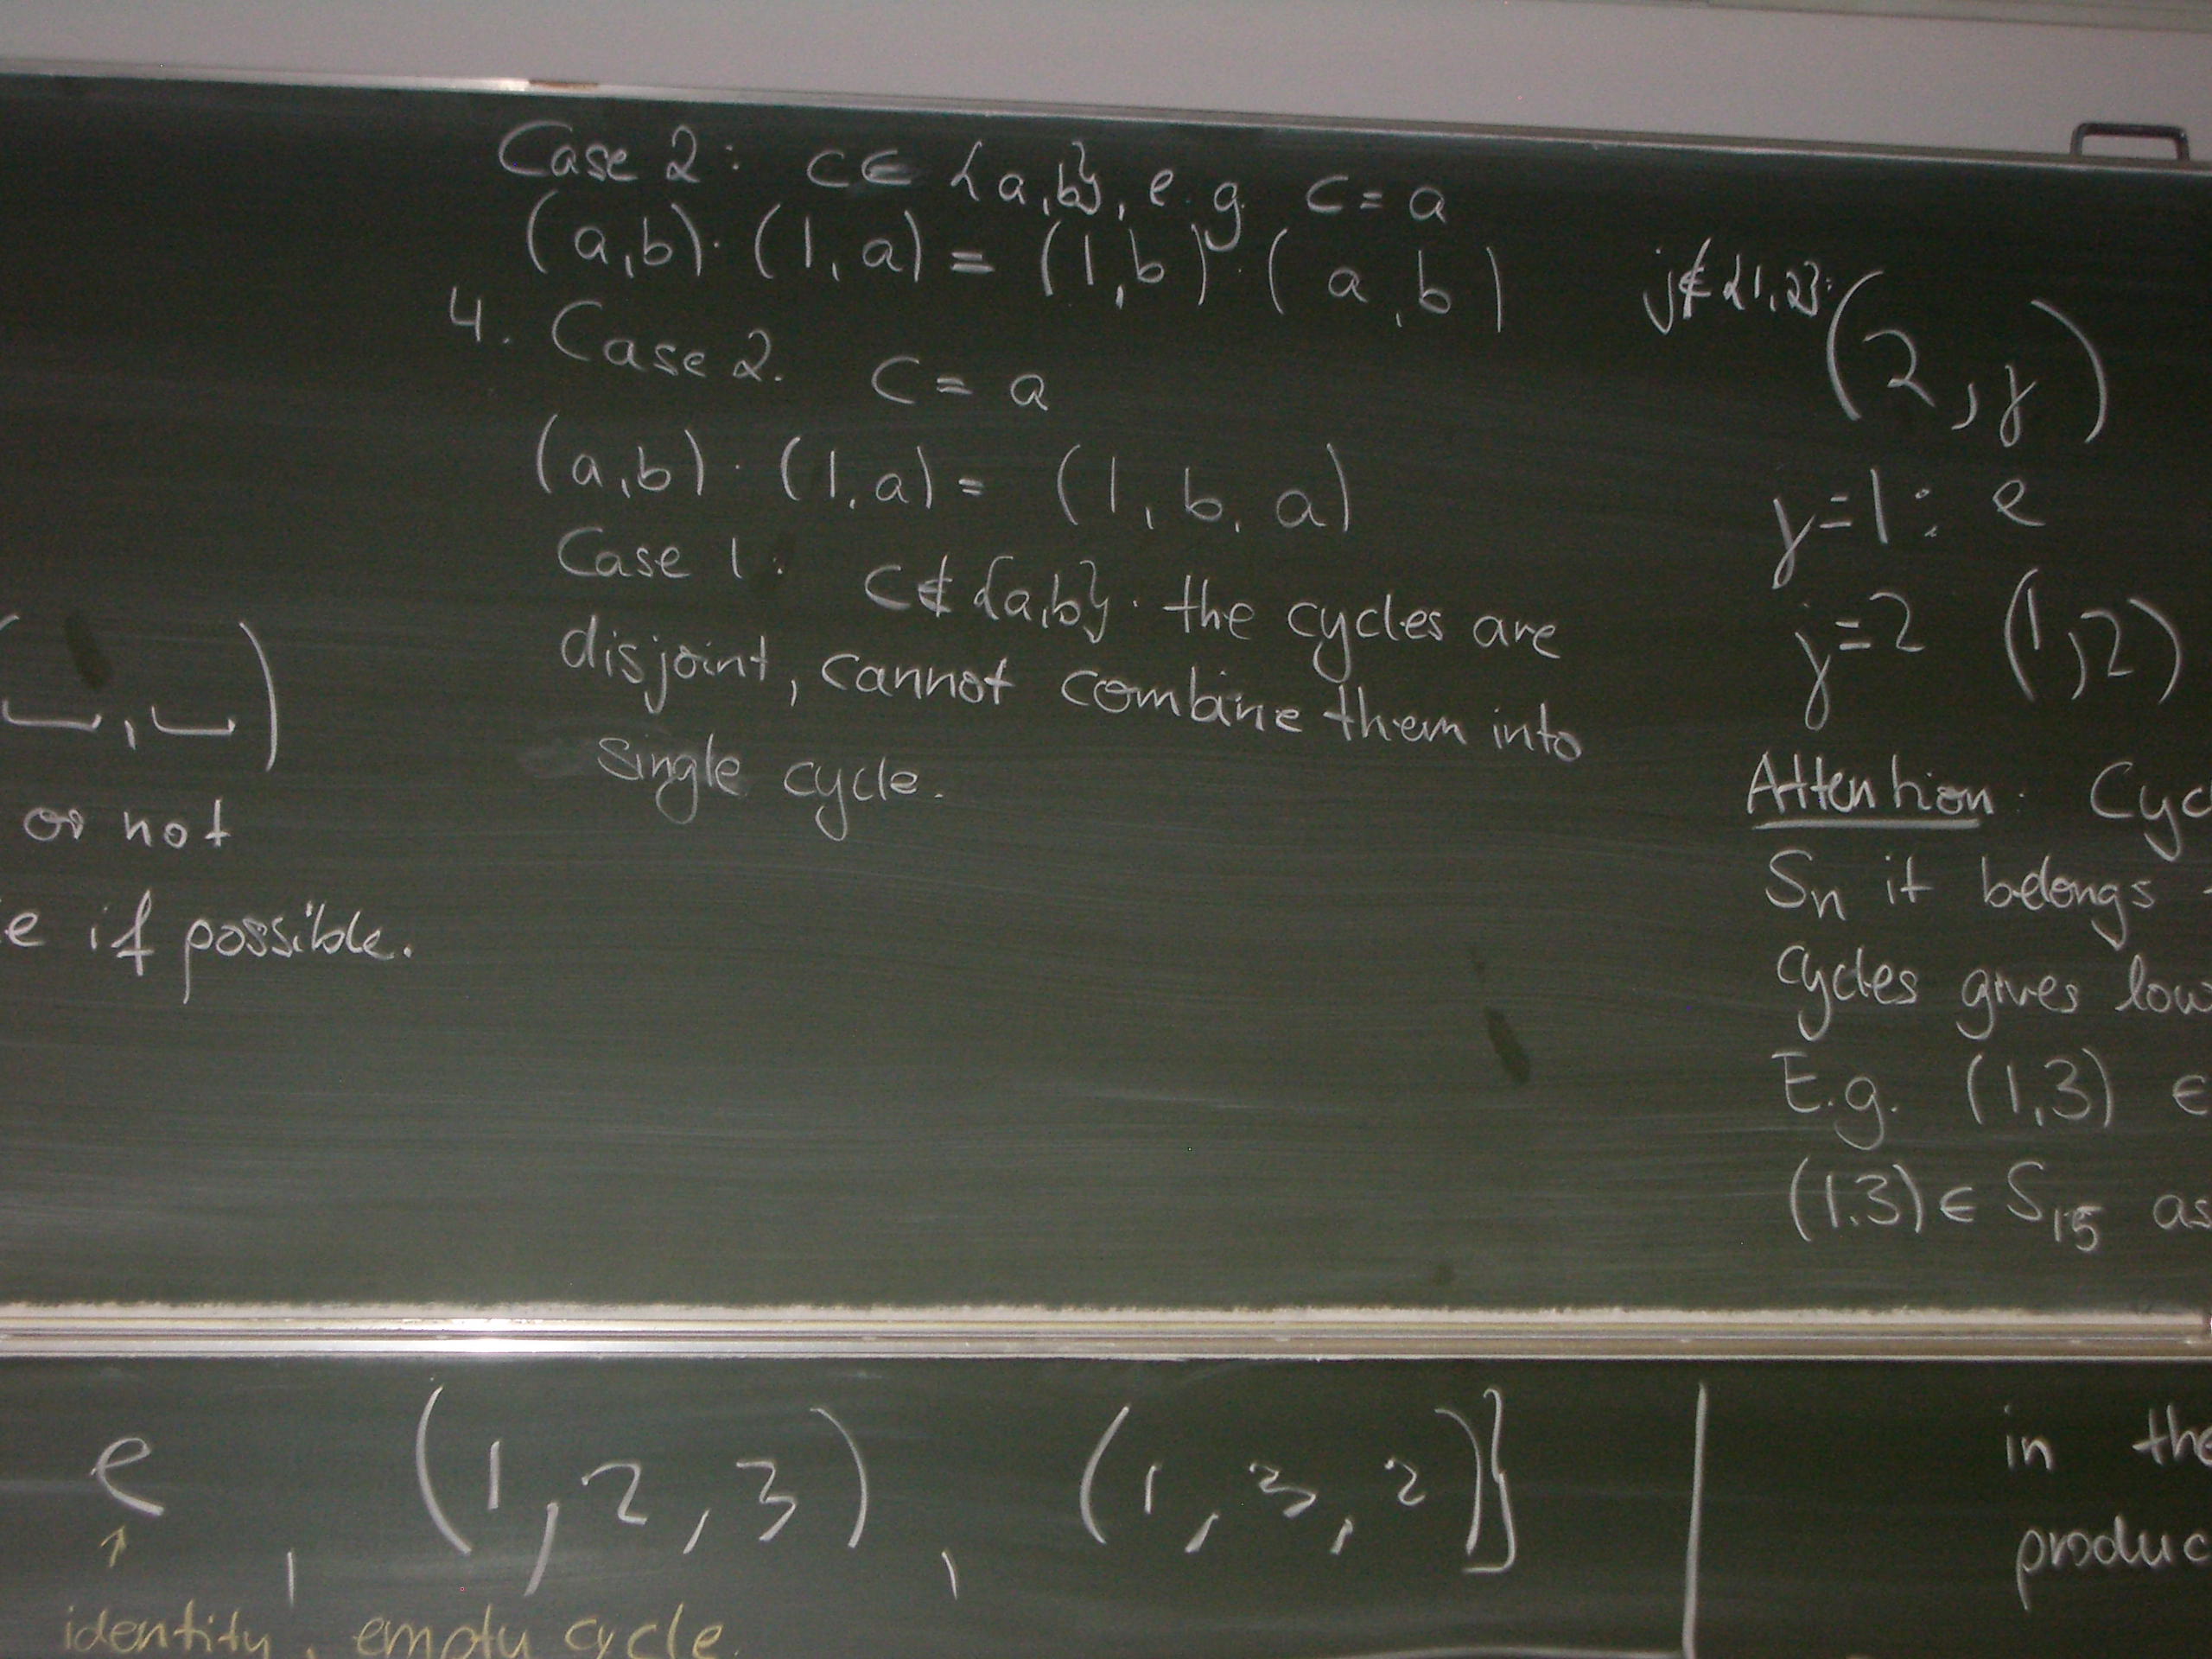 Case 2: c ∈ {a,b}, e.g. c = a
(a,b) · (1,a) = (1,b) · (a,b)
4. Case 2. c = a
(a,b) · (1,a) = (1, b, a)
Case 1: c ∉ {a,b} · the cycles are
disjoint, cannot combine them into
single cycle.
( , )
or not
e if possible.
j ∉ {1,2}: (2, j)
j=1: e
j=2 (1,2)
Attention: Cyc
Sn it belongs
cycles gives low
E.g. (1,3) ∈
(1.3) ∈ S15 as
e , (1,2,3) , (1,3,2)}
↑
identity, empty cycle.
in the
produc